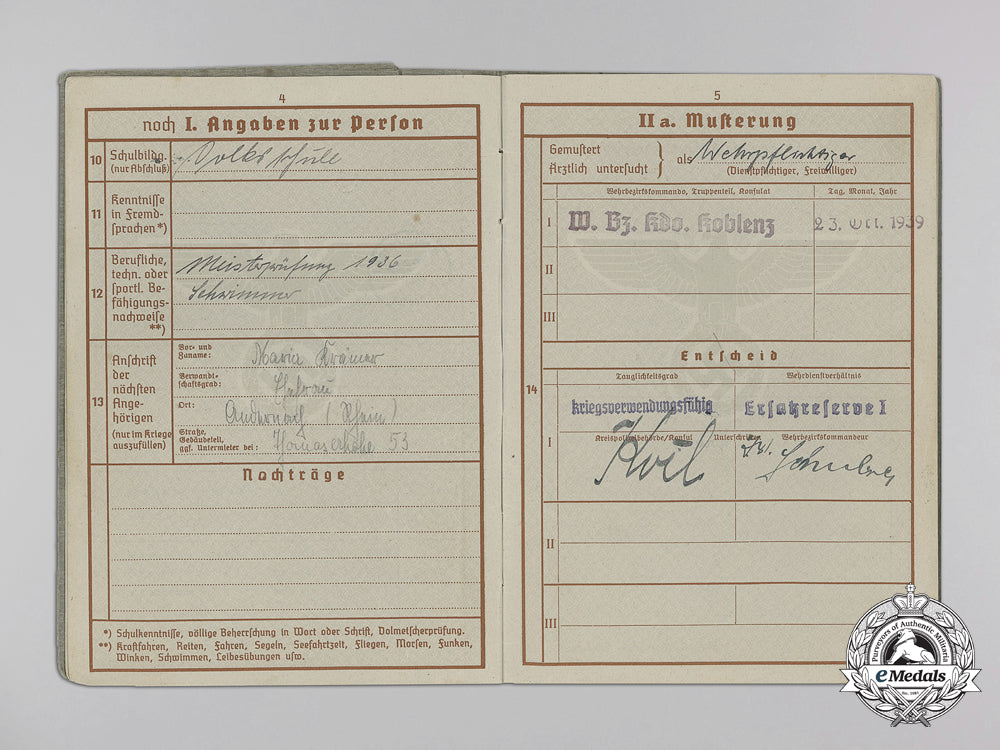 4
noch I. Angaben zur Person
10 Schulbildg. (nur Abschluß) Volksschule
11 Kenntnisse in Fremd-sprachen *)
12 Berufliche, techn. oder sportl. Be-fähigungs-nachweise **)
Meisterprüfung 1936
Schwimmer
13 Anschrift der nächsten Ange-hörigen (nur im Kriege auszufüllen)
Vor- und Zuname: Maria Krämer
Verwandt-schaftsgrad: Ehefrau
Ort: Andernach (Rhein)
Straße, Gebäudeteil, ggf. Untermieter bei: 53
Nachträge
*) Schulkenntnisse, völlige Beherrschung in Wort oder Schrift, Dolmetscherprüfung.
**) Kraftfahren, Reiten, Fahren, Segeln, Seefahrtzeit, Fliegen, Morsen, Funken,
Winken, Schwimmen, Leibesübungen usw.
5
IIa. Musterung
Gemustert
Ärztlich untersucht } als Wehrpflichtiger
(Dienstpflichtiger, Freiwilliger)
Wehrbezirkskommando, Truppenteil, Konsulat Tag, Monat, Jahr
I W. Bz. Kdo. Koblenz 23. Okt. 1939
II
III
Entscheid
14
Tauglichkeitsgrad Wehrdienstverhältnis
kriegsverwendungsfähig Ersatzreserve I
I Kreispolizeibehörde/Konsul Unterschrift Wehrbezirkskommandeur
II
III
Purveyors of Authentic Militaria
eMedals